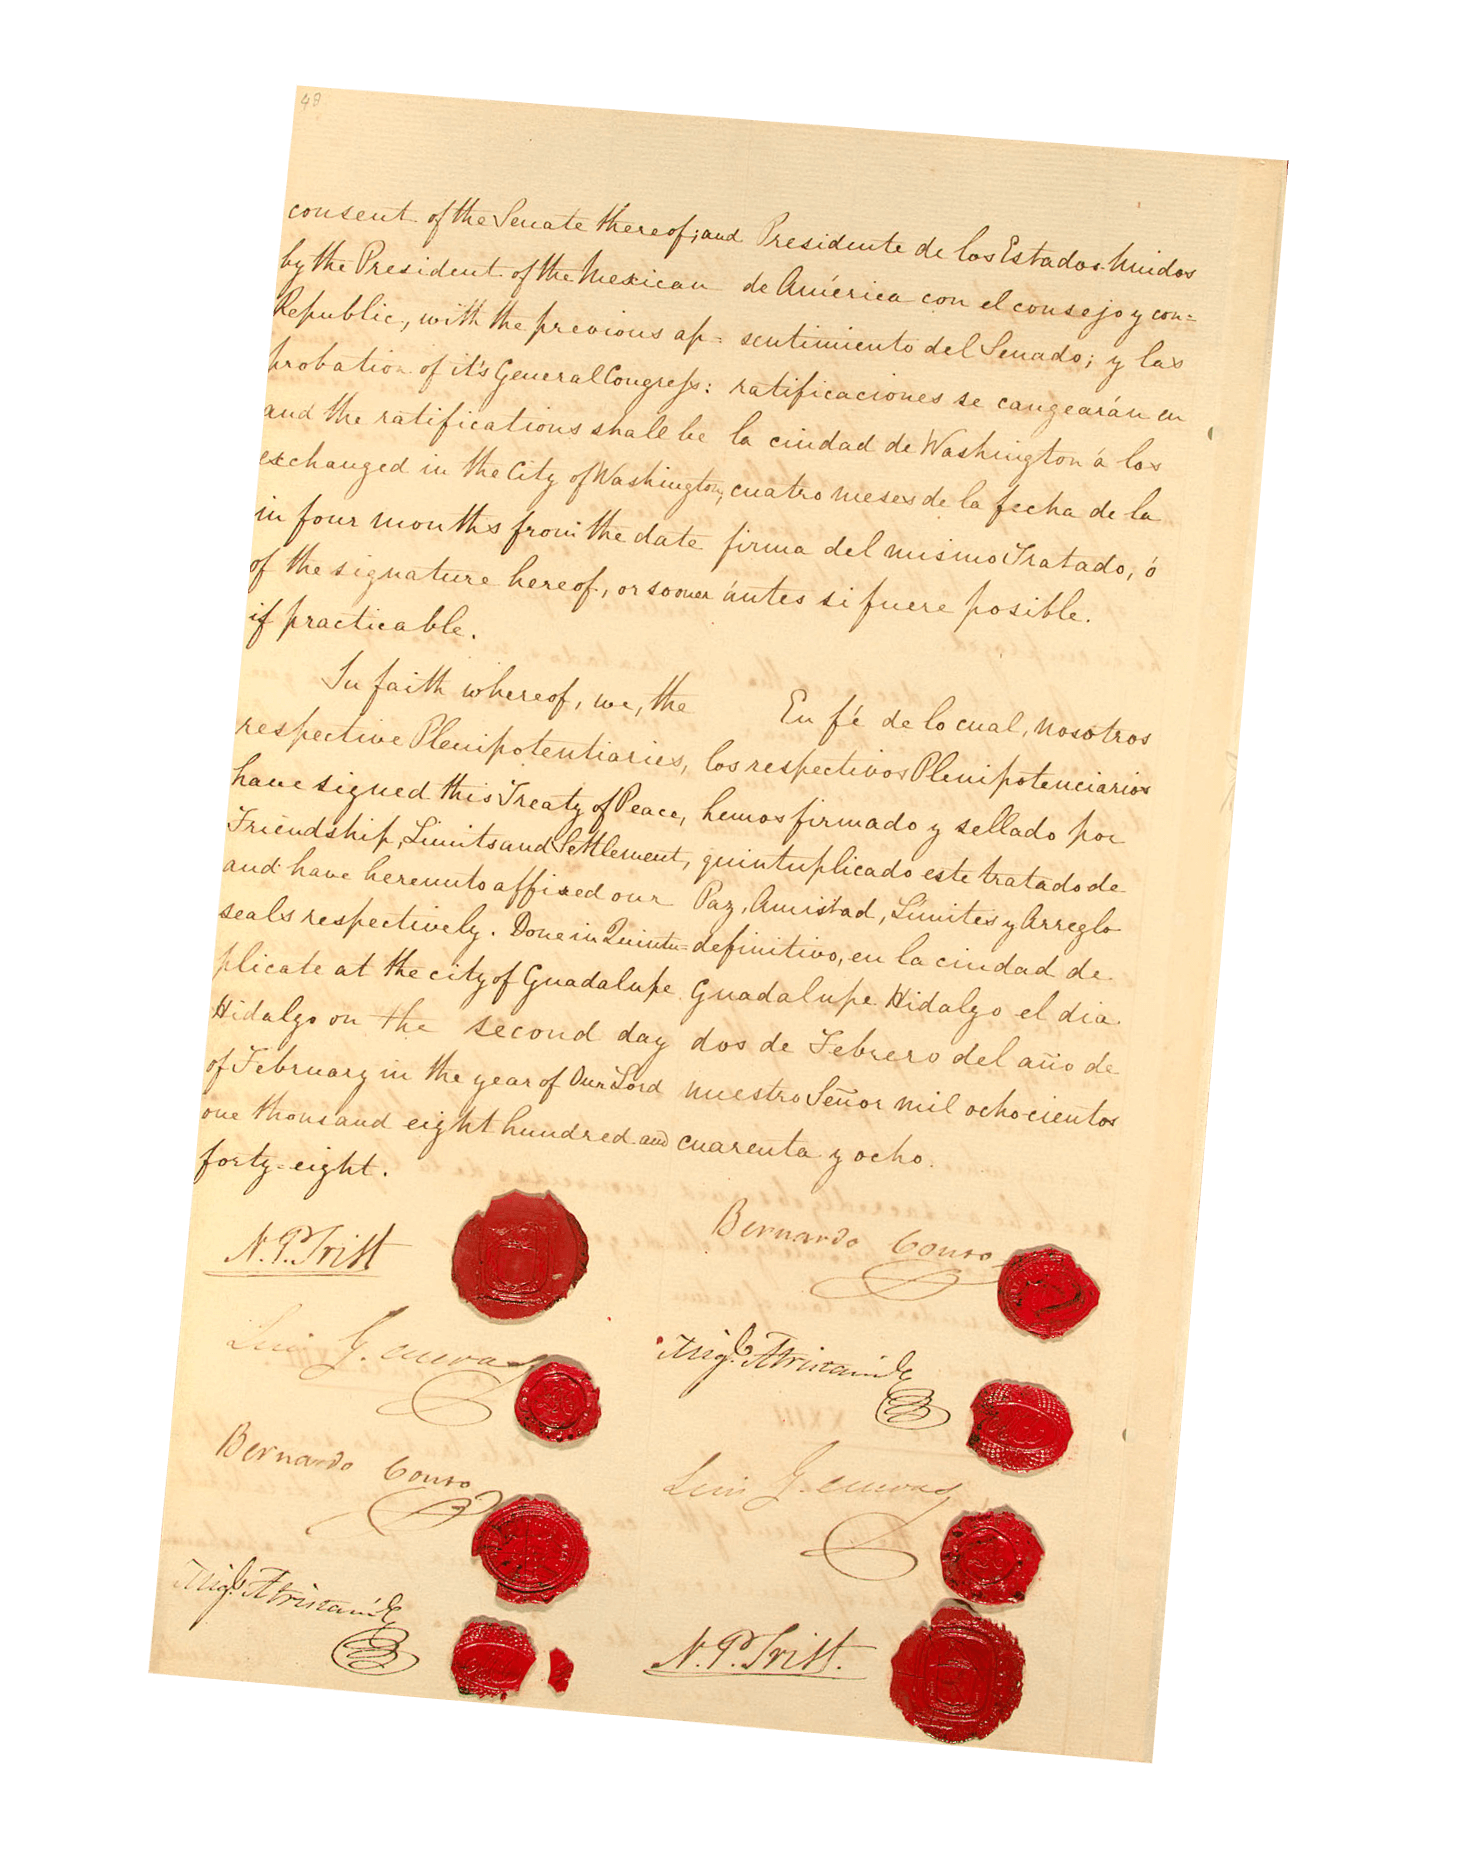 48
consent of the Senate thereof; and
by the President of the Mexican
Republic, with the previous ap=
probation of it's General Congress:
and the ratifications shall be
exchanged in the City of Washington,
in four months from the date
of the signature hereof, or sooner
if practicable.
In faith whereof, we, the
respective Plenipotentiaries,
have signed this Treaty of Peace,
Friendship, Limits and Settlement,
and have hereunto affixed our
seals respectively. Done in Quintu=
plicate at the city of Guadalupe
Hidalgo on the second day
of February in the year of Our Lord
one thousand eight hundred and
forty-eight.
Presidente de los Estados-Unidos
de América con el consejo y con=
sentimiento del Senado; y las
ratificaciones se cangearán en
la ciudad de Washington á los
cuatro meses de la fecha de la
firma del mismo Tratado, ó
ántes si fuere posible.
En fé de lo cual, nosotros
los respectivos Plenipotenciarios
hemos firmado y sellado por
quintuplicado este tratado de
Paz, Amistad, Límites y Arreglo
definitivo, en la ciudad de
Guadalupe Hidalgo el dia
dos de Febrero del año de
nuestro Señor mil ochocientos
cuarenta y ocho.
N. P. Trist
Luis G. Cuevas
Bernardo Couto
Migl. Atristain
Bernardo Couto
Migl. Atristain
Luis G. Cuevas
N. P. Trist.